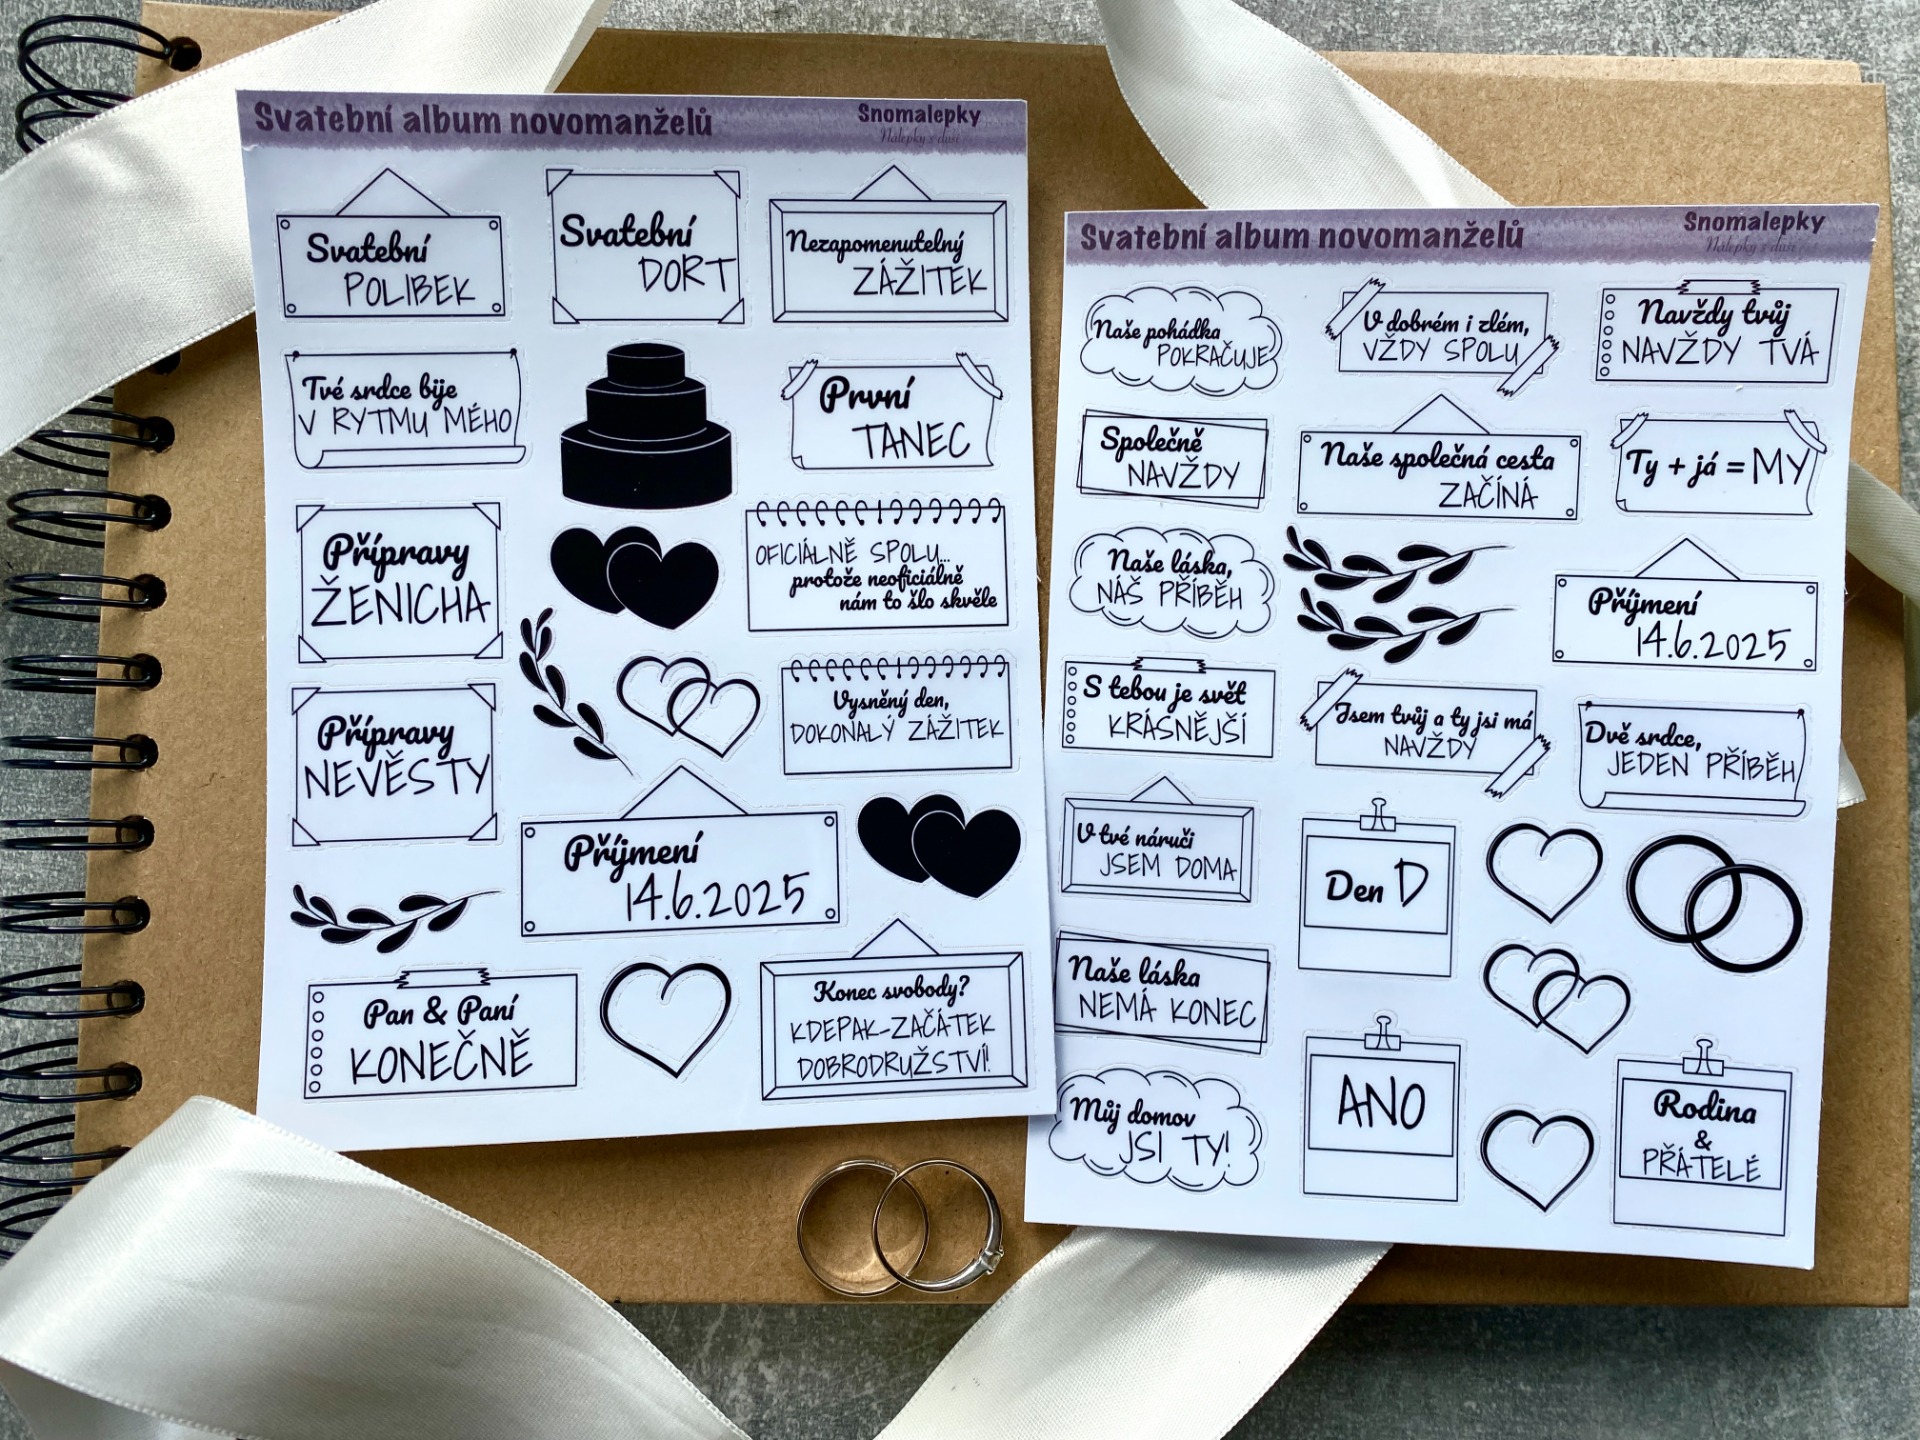 Svatební album novomanželů
Snomalepky
Nálepky s duší
Svatební
POLIBEK
Svatební
DORT
Nezapomenutelný
ZÁŽITEK
Tvé srdce bije
V RYTMU MÉHO
První
TANEC
Přípravy
ŽENICHA
OFICIÁLNĚ SPOLU...
protože neoficiálně
nám to šlo skvěle
Přípravy
NEVĚSTY
Vysněný den,
DOKONALÝ ZÁŽITEK
Příjmení
14.6.2025
Pan & Paní
KONEČNĚ
Konec svobody?
KDEPAK-ZAČÁTEK
DOBRODRUŽSTVÍ!
Svatební album novomanželů
Snomalepky
Nálepky s duší
Naše pohádka
POKRAČUJE
V dobrém i zlém,
VŽDY SPOLU
Navždy tvůj
NAVŽDY TVÁ
Společně
NAVŽDY
Naše společná cesta
ZAČÍNÁ
Ty + já = MY
Naše láska,
NÁŠ PŘÍBĚH
Příjmení
14.6.2025
S tebou je svět
KRÁSNĚJŠÍ
Jsem tvůj a ty jsi má
NAVŽDY
Dvě srdce,
JEDEN PŘÍBĚH
V tvé náruči
JSEM DOMA
Den D
Naše láska
NEMÁ KONEC
ANO
Rodina
&
PŘÁTELÉ
Můj domov
JSI TY!